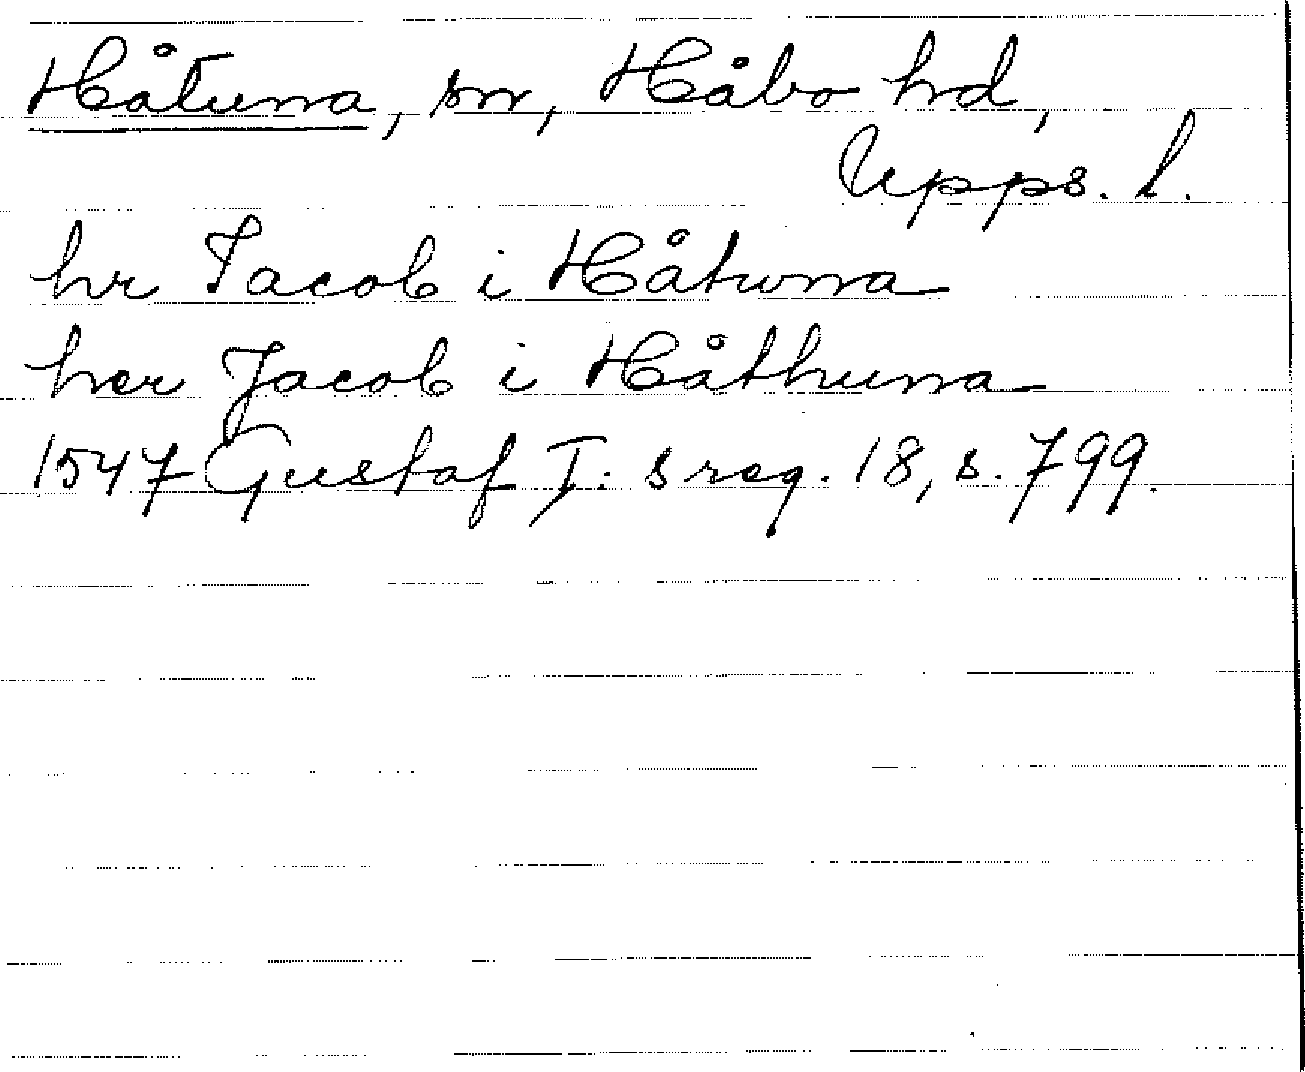 Håtuna, sn, Håbo hd,
Upps. l.
hr Jacob i Håtuna
her Jacob i Håthuna
1547 Gustaf I: s reg. 18, s. 799.